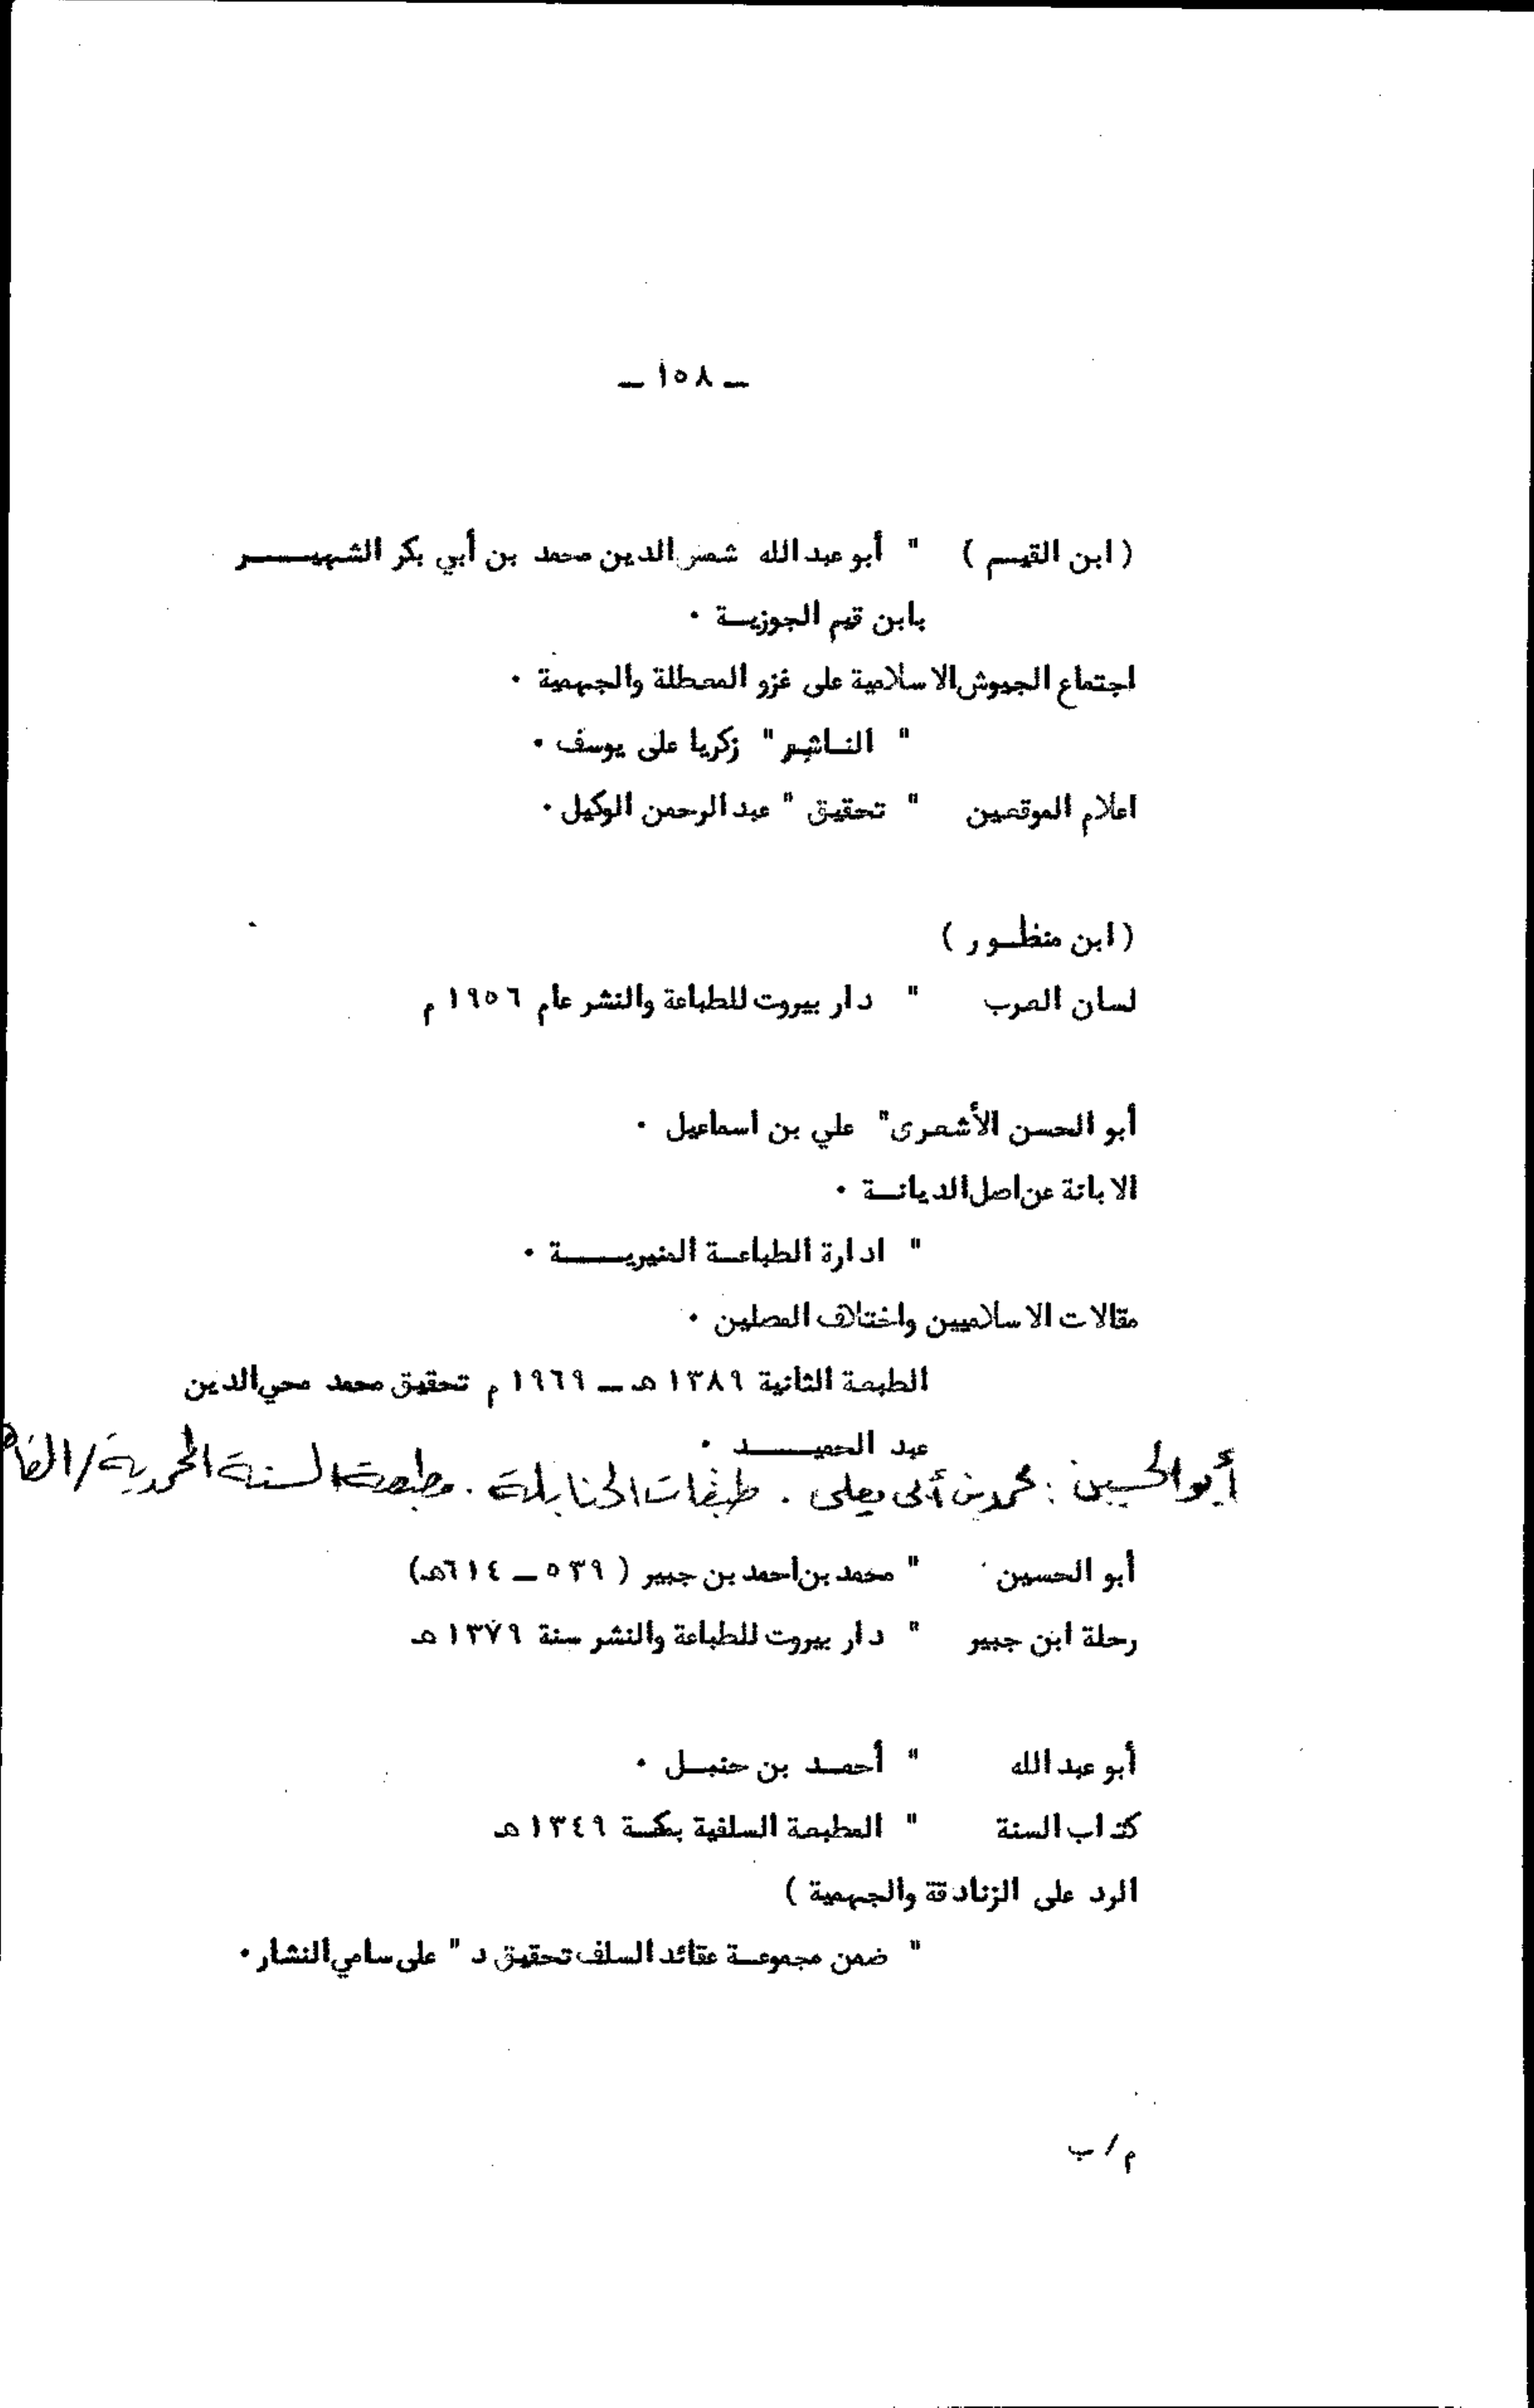 ــ ١٥٨ ــ
( ابن القيـم ) " أبو عبد الله شمس الدين محمد بن أبي بكر الشهيـــــر
بابن قيم الجوزيـة .
اجتماع الجيوش الاسلامية على غزو المعطلة والجهمية .
" النـاشر " زكريا على يوسف .
اعلام الموقعين " تحقيق " عبد الرحمن الوكيل .
( ابن منظـور )
لسان العرب " دار بيروت للطباعة والنشر عام ١٩٥٦ م
أبو الحسن الأشعرى " علي بن اسماعيل .
الابانة عن اصل الديانـة .
" ادارة الطباعـة المنيريـــــة .
مقالات الاسلاميين واختلاف المصلين .
الطبعة الثانية ١٣٨٩ هـ ــ ١٩٦٩ م تحقيق محمد محي الدين
عبد الحميـــــد .
أبو الحسين : محمد بن أبى يعلى . طبقات الحنابلة . مطبعة السنة المحمدية /
أبو الحسين " محمد بن احمد بن جبير ( ٥٣٩ ــ ٦١٤هـ)
رحلة ابن جبير " دار بيروت للطباعة والنشر سنة ١٣٧٩ هـ
أبو عبد الله " أحمـد بن حنبـل .
كتاب السنة " المطبعة السلفية بمكـة ١٣٤٩ هـ
الرد على الزنادقة والجهمية )
" ضمن مجموعـة عقائد السلف تحقيق د " على سامي النشار .
م / ب